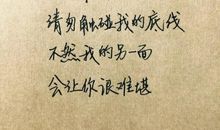 请勿触碰我的底线
不然我的另一面
会让你很难堪